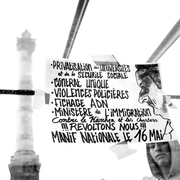 - PRIVATISATION DES UNIVERSITÉS
et de la SÉCURITÉ SOCIALE
- CONTRAT UNIQUE
- VIOLENCES POLICIÈRES
- FICHAGE ADN
- MINISTÈRE DE L'IMMIGRATION
Contre le
!!! REVOLTONS NOUS !!!
MANIF NATIONALE LE 16 MAI